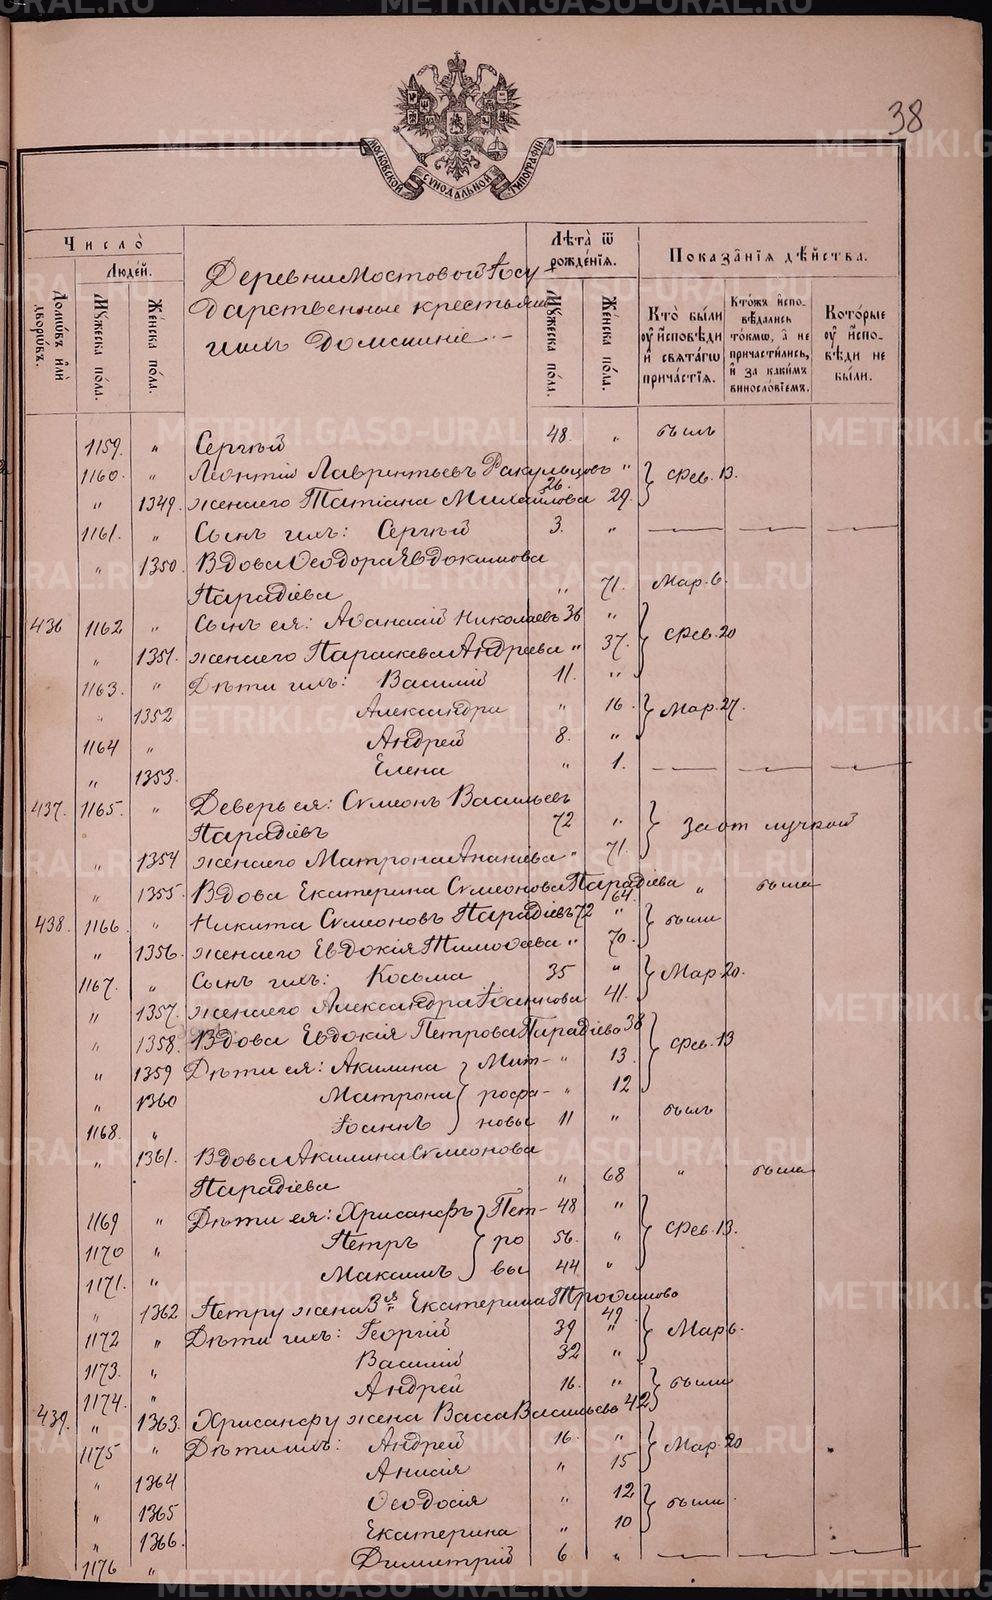 38
МОСКОВСКОЙ СѴНОДАЛЬНОЙ ТИПОГРАФІИ
Число̀
Люде́й.
Домѡ́въ и҆лѝ дворѡ́въ.
Мꙋ́жеска по́ла.
Же́нска по́ла.
Деревни Мостовой Госу-
дарственные крестья-
и ихъ домашніе.
Лѣ́та ѿ рожде́нїѧ.
Мꙋ́жеска по́ла.
Же́нска по́ла.
Показа̂нїѧ дѣ́йства.
Кто̀ бы́ли ᲂу҆ и҆сповѣди и҆ свѧта́гѡ прича́стїѧ.
Кто́жъ и҆спо-вѣдались то́кмѡ, а҆ не причасти́лись, и҆ за каки́мъ винослѡ́вїемъ.
Кото́рые ᲂу҆ и҆спо-вѣди не бы́ли.
1159. " Сергѣй 48. " былъ
1160. " Леонтій Лаврентьевъ Ракульцовъ 26. " Фев. 13.
" 1349. жена его Татіана Михайлова 29.
1161. " Сынъ ихъ: Сергѣй 3. "
" 1350. Вдова Ѳеодора Евдокимова
Парадіева " 71. Мар. 6.
436 1162 " Сынъ ея: Аѳанасій Николаевъ 36 " Фев. 20
" 1351. жена его Параскева Андреева " 37.
1163. " Дѣти ихъ: Василій 11. "
" 1352 Александра " 16. Мар. 27.
1164 " Андрей 8. "
" 1353. Елена " 1.
437. 1165. " Деверь ея: Сѵмеонъ Васильевъ
Парадіевъ 72 " За отлучкой
" 1354 жена его Матрона Ананіева " 71.
" 1355. Вдова Екатерина Сѵмеонова Парадіева 64. " была
438. 1166. " Никита Сѵмеоновъ Парадіевъ 72 " были
" 1356. жена его Евдокія Тимоѳеева " 70.
1167. " Сынъ ихъ: Косьма 35 " Мар. 20.
" 1357. жена его Александра Іоаннова 41.
" 1358. Вдова Евдокія Петрова Парадіева 38 Фев. 13
" 1359 Дѣти ея: Акилина } Мит- " 13.
" 1360 Матрона } рофа- " 12
1168. " Іоаннъ } новы 11 " былъ
" 1361. Вдова Акилина Сѵмеонова
Парадіева " 68 " была
1169 " Дѣти ея: Хрисанфъ } Пет- 48 " Фев. 13.
1170 " Петръ } ро 56. "
1171. " Максимъ } вы 44 "
" 1362 Петру жена 3я Екатерина Трофимова 49 Мар 6.
1172 " Дѣти ихъ: Георгій 39 "
1173. " Василій 32 "
1174. " Андрей 16. " были
439. " 1363. Хрисанфу жена Васса Васильева 42
1175 " Дѣти ихъ: Андрей 16. " Мар. 20
" 1364 Анисія " 15
" 1365 Ѳеодосія " 12 были
" 1366. Екатерина " 10
1176 " Димитрій 6 "
METRIKI.GASO-URAL.RU